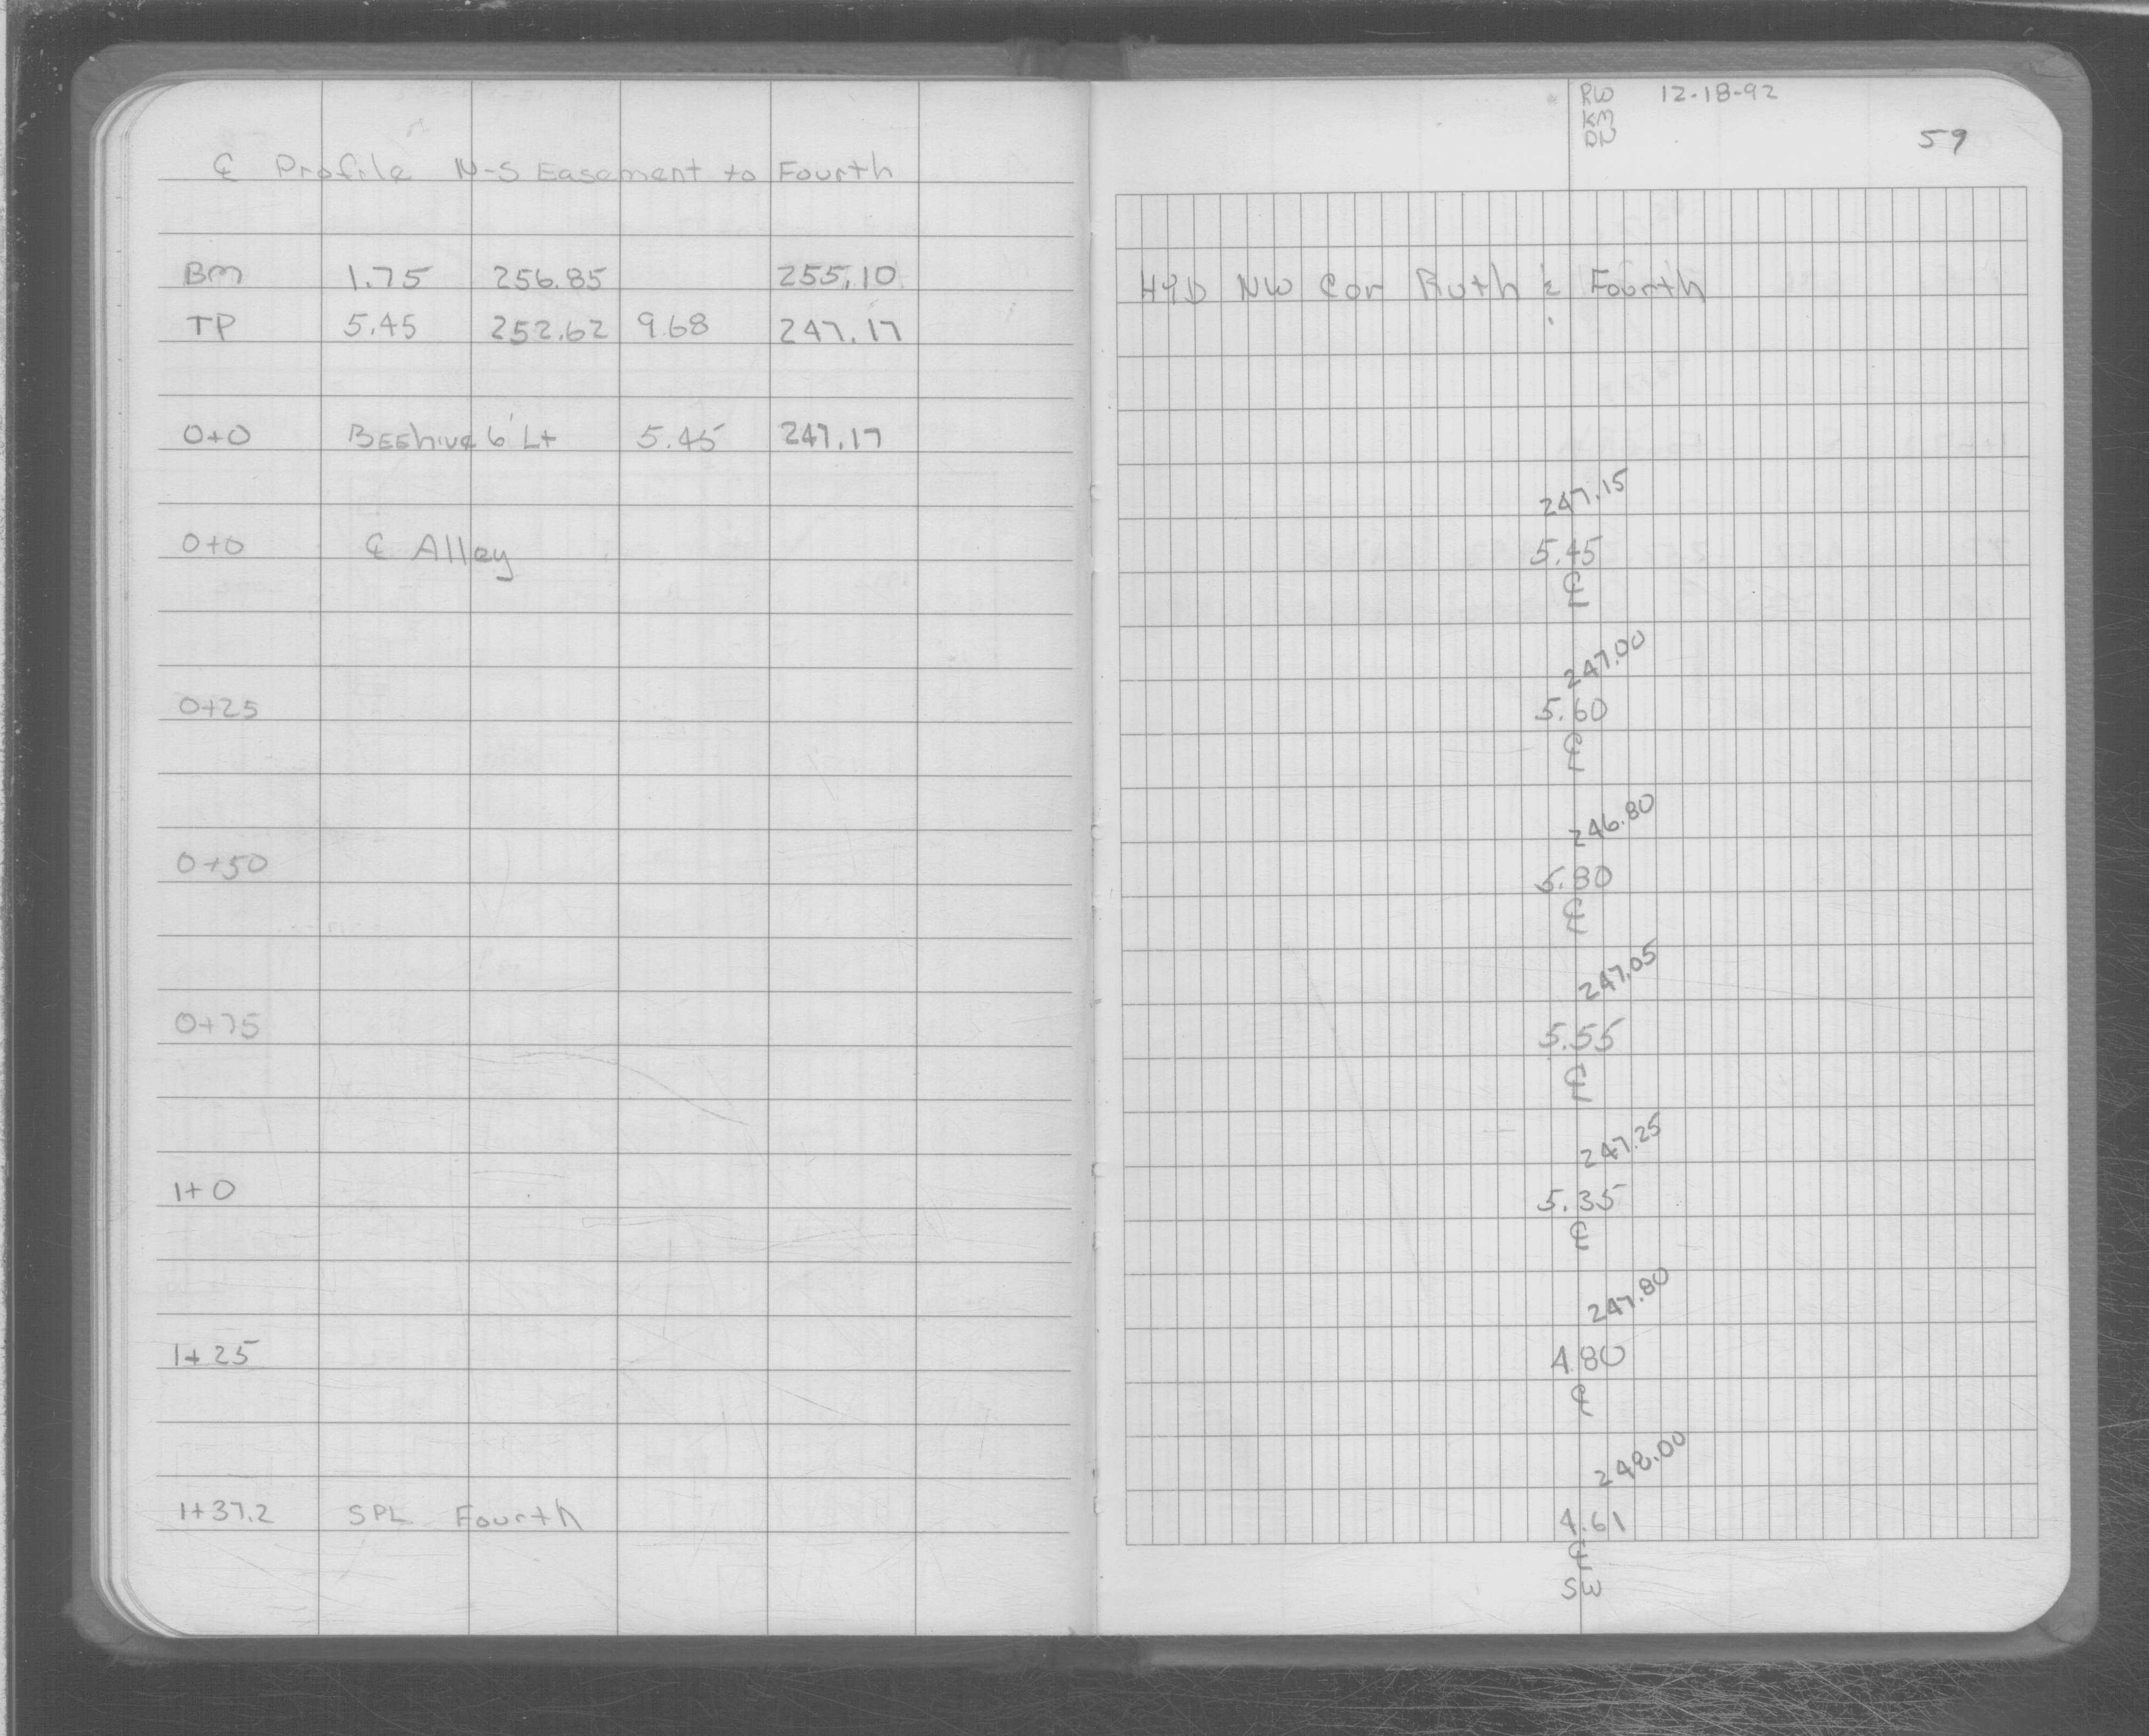 ℄ Profile N-S Easement to Fourth
BM 1.75 256.85 255.10
TP 5.45 252.62 9.68 247.17
0+0 BEEhive 6' Lt 5.45 247.17
0+0 ℄ Alley
0+25
0+50
0+75
1+0
1+25
1+37.2 SPL Fourth
RW 12-18-92
KM
DN
59
HYD NW Cor Ruth & Fourth
247.15
5.45
℄
247.00
5.60
℄
246.80
5.80
℄
247.05
5.55
℄
247.25
5.35
℄
247.80
4.80
℄
248.00
4.61
℄
SW